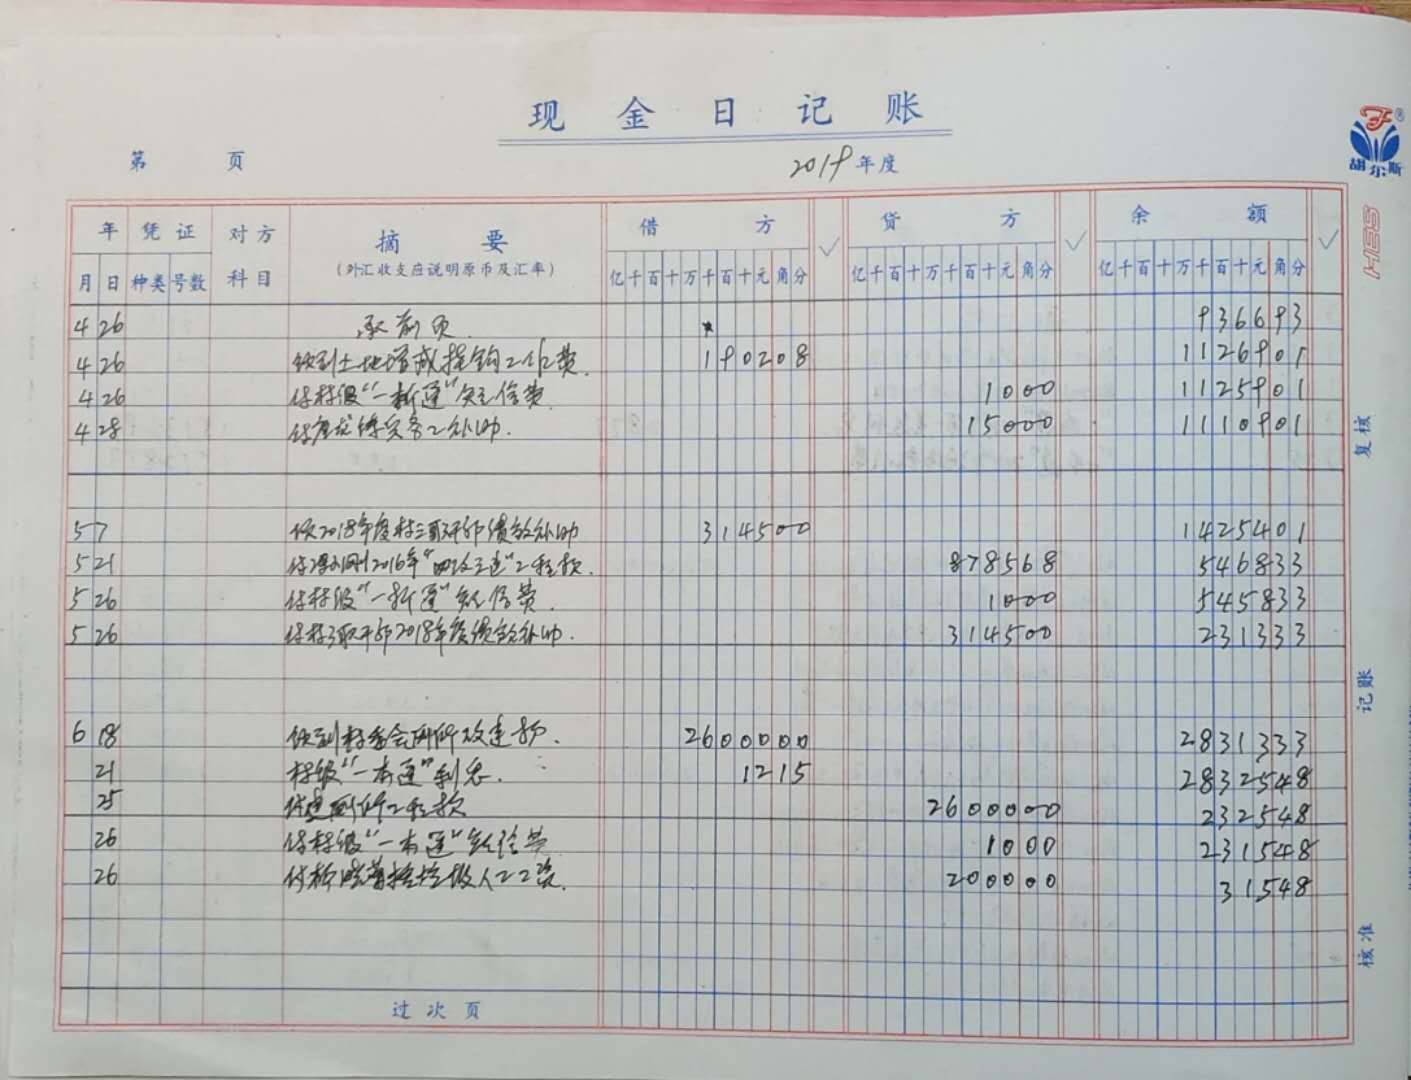 现金日记账
第 页 2019年度
年 凭证 对方科目 摘要 借方 ✓ 贷方 ✓ 余额 ✓
月 日 种类 号数 (外汇收支应说明原币及汇率) 亿千百十万千百十元角分 亿千百十万千百十元角分 亿千百十万千百十元角分
4 26 承前页 936693
4 26 收到土地增减挂钩工作费. 190208 1126901
4 26 付村级"一折通"短信费 1000 1125901
4 28 补助. 15000 1110901
5 7 收2018年度村三职干部绩效补助 314500 1425401
5 21 付 2016年"四改三建"工程款. 878568 546833
5 26 付村级"一折通"短信费. 1000 545833
5 26 付村3职干部2018年度绩效补助. 314500 231333
6 18 收到村委会厕所改造款. 2600000 2831333
21 村级"一本通"利息. 1215 2832548
25 付建厕所工程款 2600000 232548
26 付村级"一本通"短信费 1000 231548
26 付 垃圾人工工资. 200000 31548
过次页
胡尔斯
®
复核
记账
核准